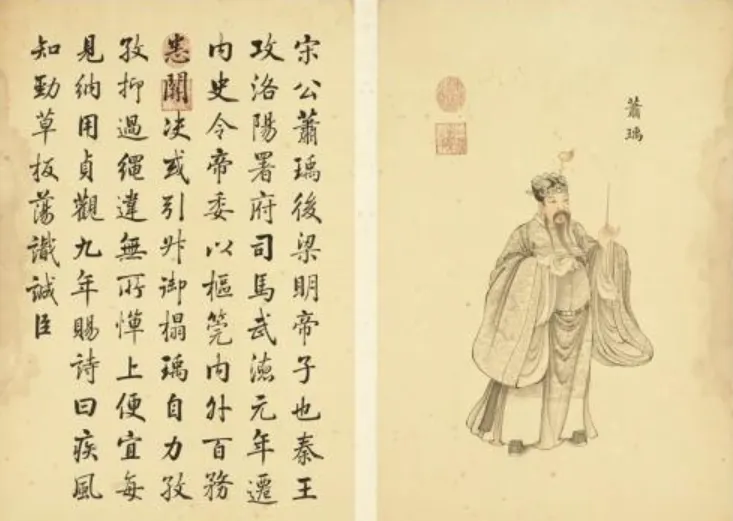 蕭瑀
宋公蕭瑀後梁明帝子也秦王
攻洛陽署府司馬武德元年遷
内史令帝委以樞筦内外百務
悉關决或引升御榻瑀自力孜
孜抑過繩違無所憚上便宜每
見納用貞觀九年賜詩曰疾風
知勁草板蕩識誠臣